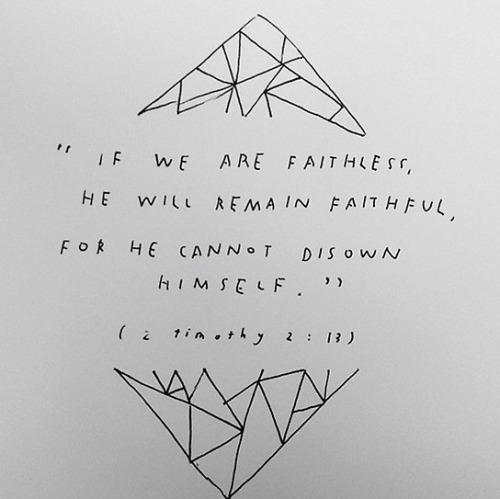 " IF WE ARE FAITHLESS,
HE WILL REMAIN FAITHFUL,
FOR HE CANNOT DISOWN
HIMSELF. "
( 2 timothy 2 : 13 )